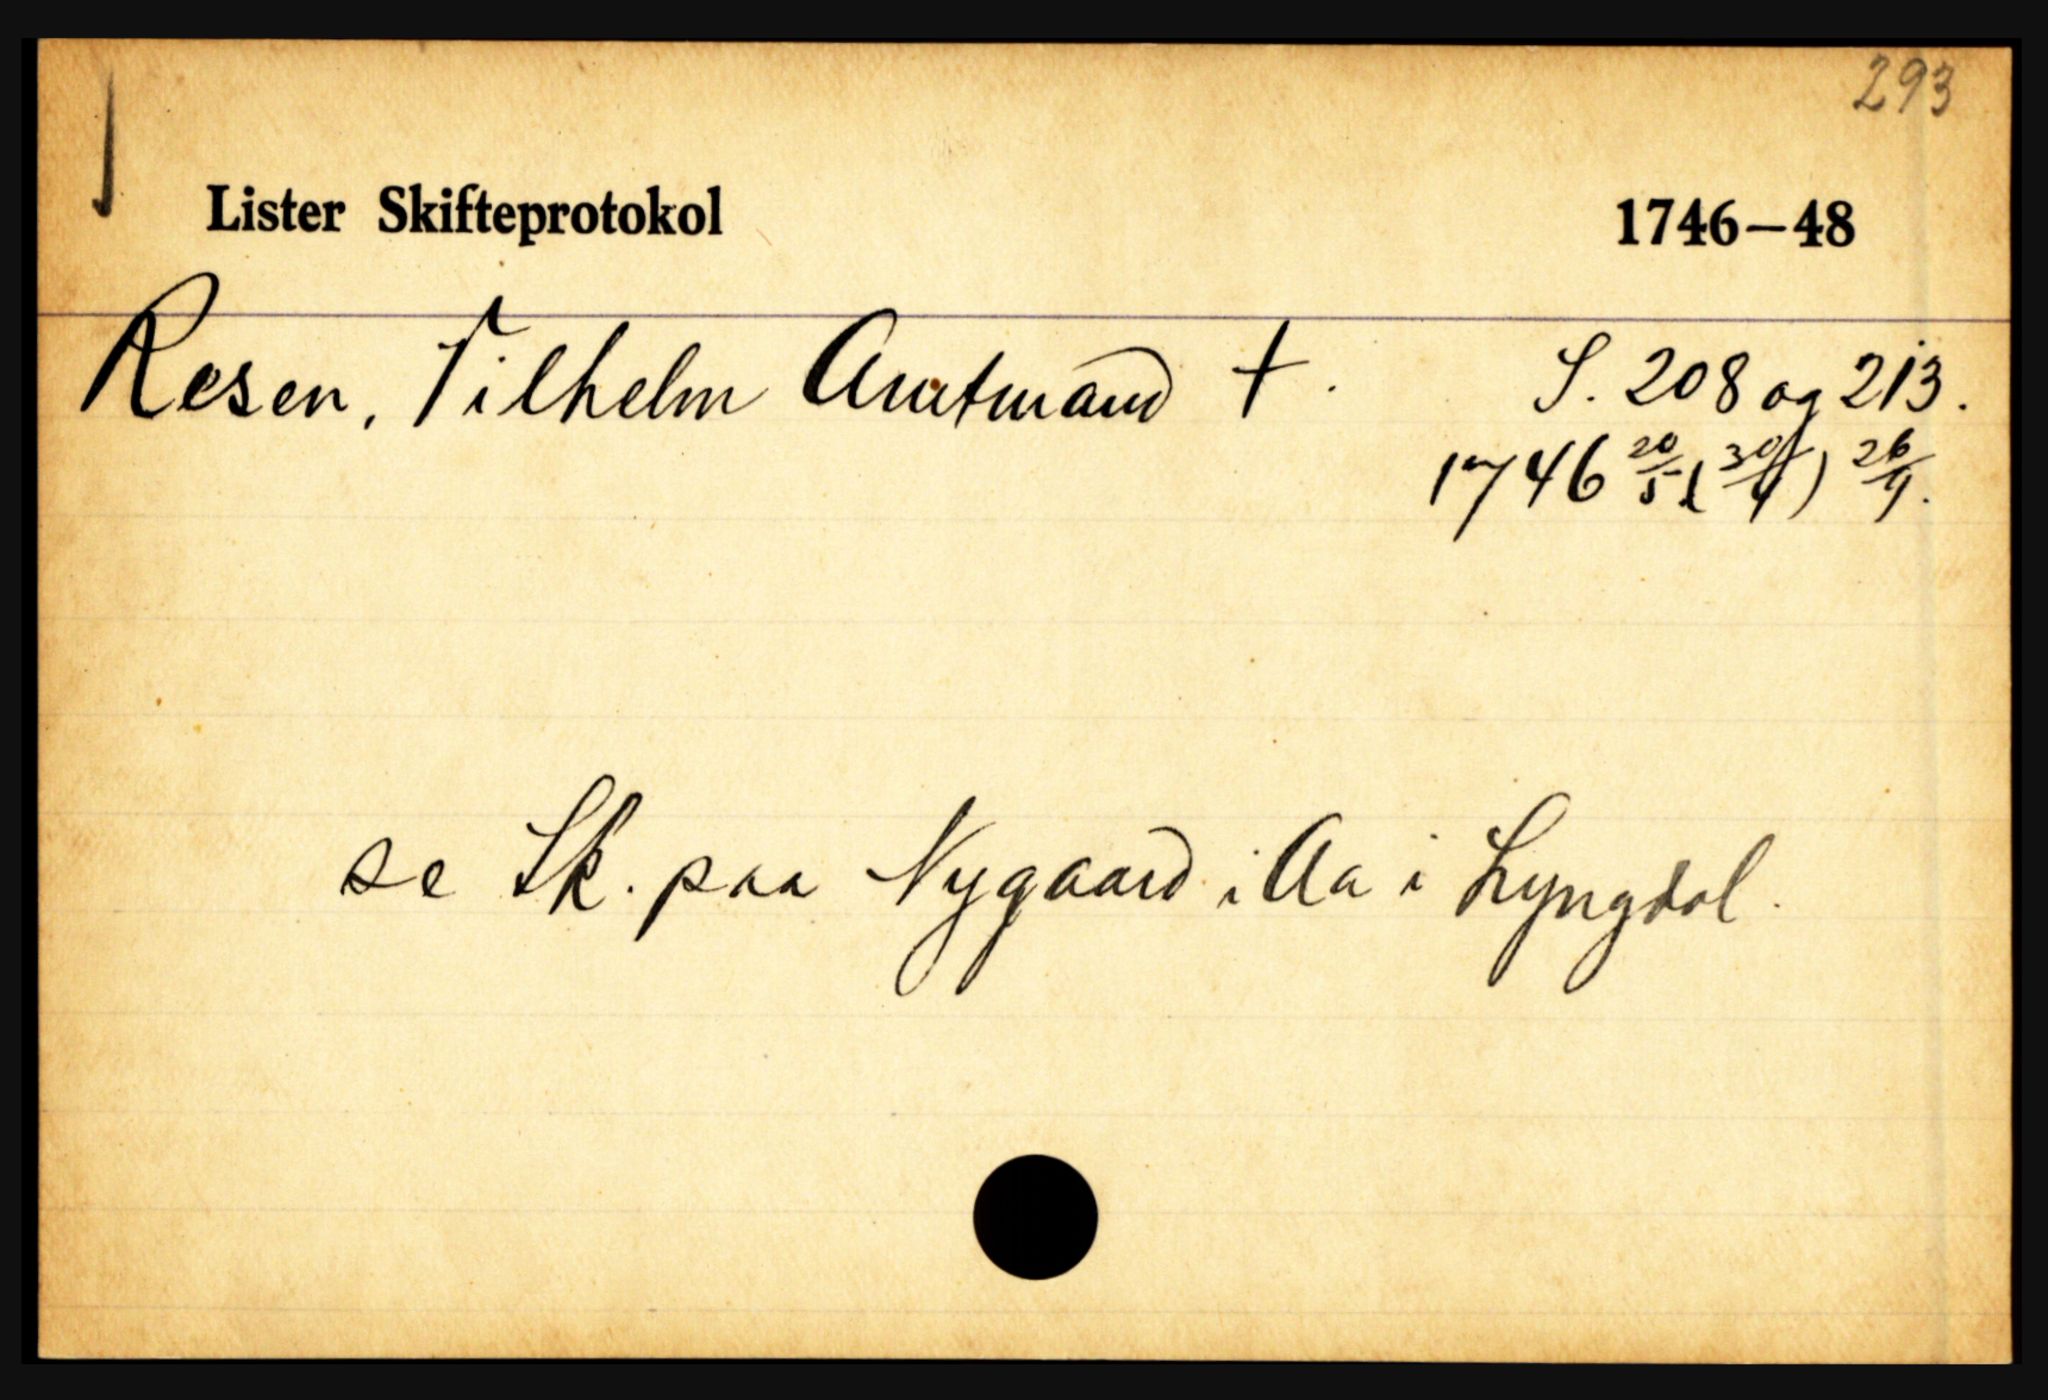 293
Lister Skifteprotokol 1746–48
Resen, Vilhelm Amtmand †. S. 208 og 213.
1746 20/5 (30/4) 26/9.
se Sk. paa Nygaard i Aa i Lyngdal.